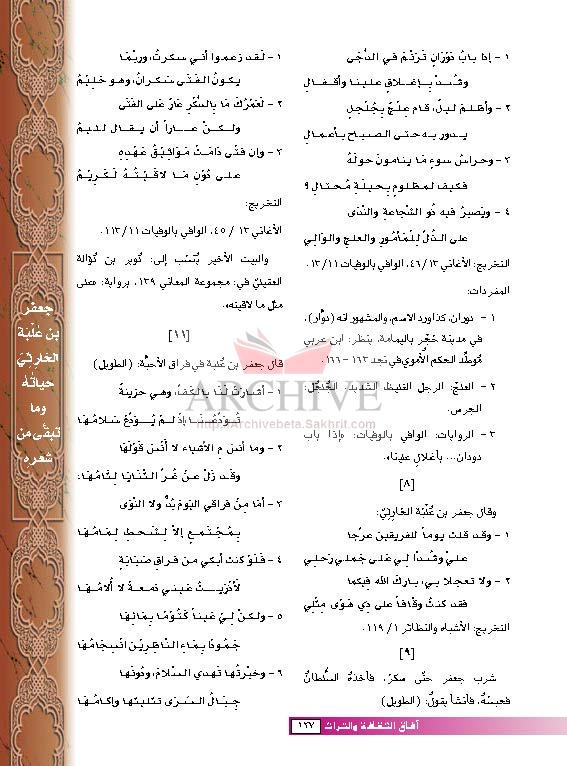 ١ - إذا بابُ دَوْرَانٍ تَرَنَّمَ في الدُّجَى
وشُدَّ بإغلاقٍ علينا وأقفالِ
٢ - وأظلمَ ليلٌ، قام عِلْجٌ بجُلْجلٍ
يدور به حتى الصباح بأعمالِ
٣ - وحراسُ سوءٍ مَا ينامونَ حولَهُ
فكيفَ لمظلومٍ بحيلةِ مُحتالِ؟
٤ - ويَصبرُ فيه ذُو الشَّجاعةِ والنَّدَى
على الذُّلِّ للمأمُورِ والعلجِ والوَالي
التخريج: الأغاني ٤٦/١٣، الوافي بالوفيات ١١٣/١١.
المفردات:
١ - دوران، كذا ورد الاسم، والمشهور انه (دوَّار)،
في مدينة حُجْر باليمامة، ينظر: ابن عربي
مُوطِّد الحكم الأُموي في نجد ١٦٣ - ١٦٦.
٢ - العلجُ: الرجل الغليظ الشديد، الجُلجُل:
الجرس.
٣ - الروايات: الوافي بالوفيات: «إذا باب
دودان... بأغلال علينا».
[٨]
وقال جعفر بن عُلْبة الحَارِثيّ:
١ - وقد قلت يوماً للفريقين عرِّجا
عليَّ وشُدَّا لي عَلى جَملي رَحلي
٢ - ولا تعجلا بي، بارك الله فيكما
فقد كنتُ وقَّافاً على ذِي هَوًى مِثلي
التخريج: الأشباه والنظائر ١/ ١١٩.
[٩]
شرب جعفر حتَّى سكرَ، فأخذهُ السُّلطانُ
فحبسُهُ، فأنشأ يقولُ: (الطويل)
١ - لقد زعموا أني سكرتُ، وربَّمَا
يكونُ الفَتَى سَكرانُ، وهو حَليمُ
٢ - لَعَمْرُكَ مَا بِالسُّكْرِ عَارٌ عَلى الفَتَى
ولكنْ عــاراً أن يـقـال لئيمُ
٣ - وإن فتًى دَامتْ مَوَاثيقُ عَهْدِهِ
على دُوْنِ مَا لاقيتُهُ لَكَرِيْمُ
التخريج:
الأغاني ١٣ / ٤٥، الوافي بالوفيات ١١٣/١١.
والبيت الأخير يُنسَب إلى:
العقيليّ في: مجموعة المعاني ١٣٩، برواية: «على
مثل ما لاقيته».
[١١]
قال جعفر بن عُلبة في فراق الأحبَّة: (الطويل)
١ - أشارتْ لنَا بِالكَفِّ، وهي حَزِينةٌ
تُـوَدِّعُـنَـا إذْ لَمْ يُـوَدِّعْ سَلامُهَا
٢ - وما أنسَ مِ الأشياء لا أنسَ قَوْلَهَا
وقَد زلَّ عنْ غُرِّ الثَّنايَا لِثَامُهَا:
٣ - أمَا مِنْ فراقِ اليومَ بُدٌّ ولا النَّوَى
بِمُجْتَمعٍ إلا لِشَحطٍ لِمَامُهَا
٤ - فَلَوْ كنت أبكي من فراقِ صَبَابَةٍ
لأذْرَيْتُ عَيني دَمعةً لا ألامُهَا
٥ - ولكنْ ليَ عَيناً كَتُوْمًا بِمَائِهَا
جَمُودًا بِمَاءِ النَّاظرَيْنِ انْسِجَامُهَا
٦ - وخَبَّرْتُهَا تَهدي السَّلامَ، ودُونَها
جِبالُ السَّرَى تثليثُها وإكامُهَا
جعفر
بن عُلْبة
الحَارِثيّ
حياتُه
وما
تبقَّى من
شعره
ARCHIVE
http://Archivebeta.Sakhrit.com
آفاق الثقافة والتراث ١٢٧